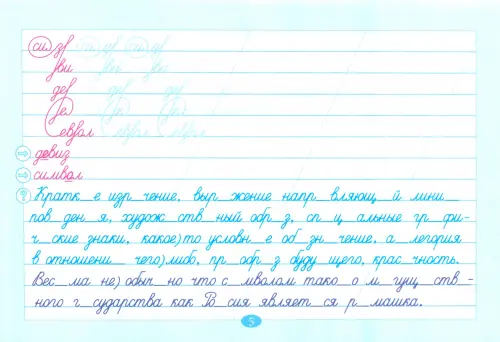 девиз
символ
Кратк_е изр_чение, выр_жение напр_вляющ_й лини_
пов_ден_я, худож_ств_ный обр_з, сп_ц_альные гр_фи-
ч_ские знаки, какое)то условн_е об_зн_чение, а_легория
в отношени_ чего)либо, пр_обр_з буду_щего, крас_чность.
Вес_ма не)обыч_но что с_мволом тако_о м_гущ_ств_-
ного г_сударства как Ро_сия является р_машка.
5